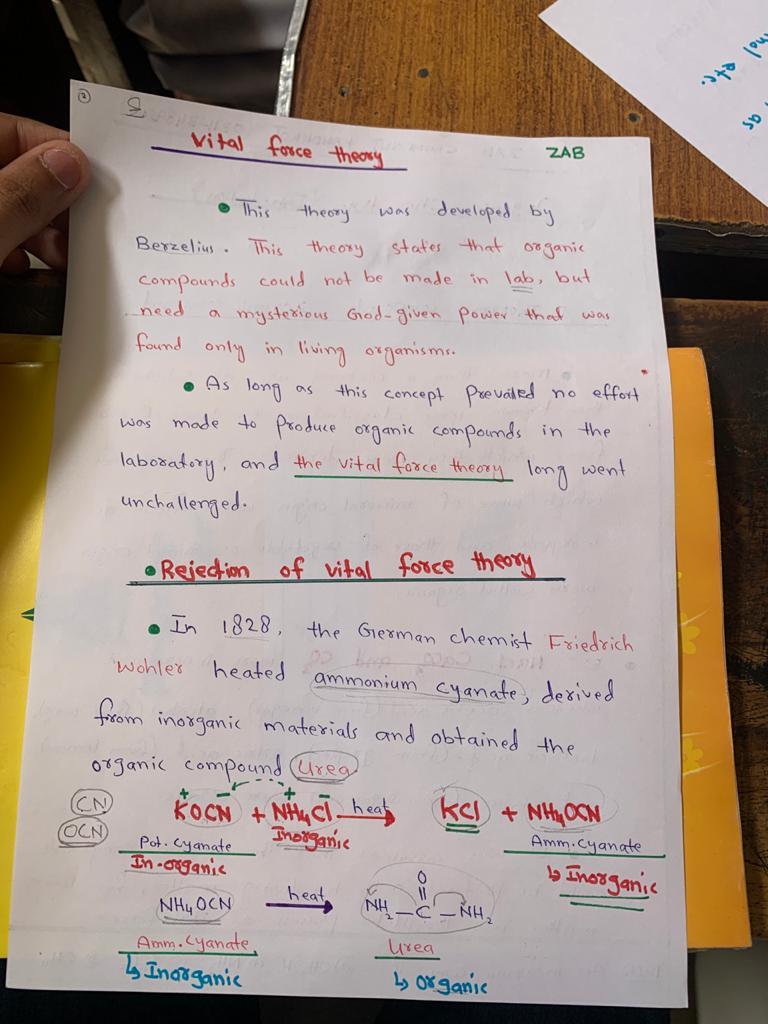 ②
Vital force theory
ZAB
• This theory was developed by
Berzelius. This theory states that organic
compounds could not be made in lab, but
need a mysterious God-given power that was
found only in living organisms.
• As long as this concept prevailed no effort
was made to produce organic compounds in the
laboratory, and the vital force theory long went
unchallenged.
• Rejection of vital force theory
• In 1828, the German chemist Friedrich
Wohler heated ammonium cyanate, derived
from inorganic materials and obtained the
organic compound Urea.
CN
OCN
+ - + -
KOCN + NH₄Cl heat→ KCl + NH₄OCN
Pot. Cyanate Inorganic Amm. Cyanate
In-organic ↳ Inorganic
O
NH₄OCN heat→ NH₂–C–NH₂
Amm. Cyanate Urea
↳ Inorganic ↳ organic
etc.
as